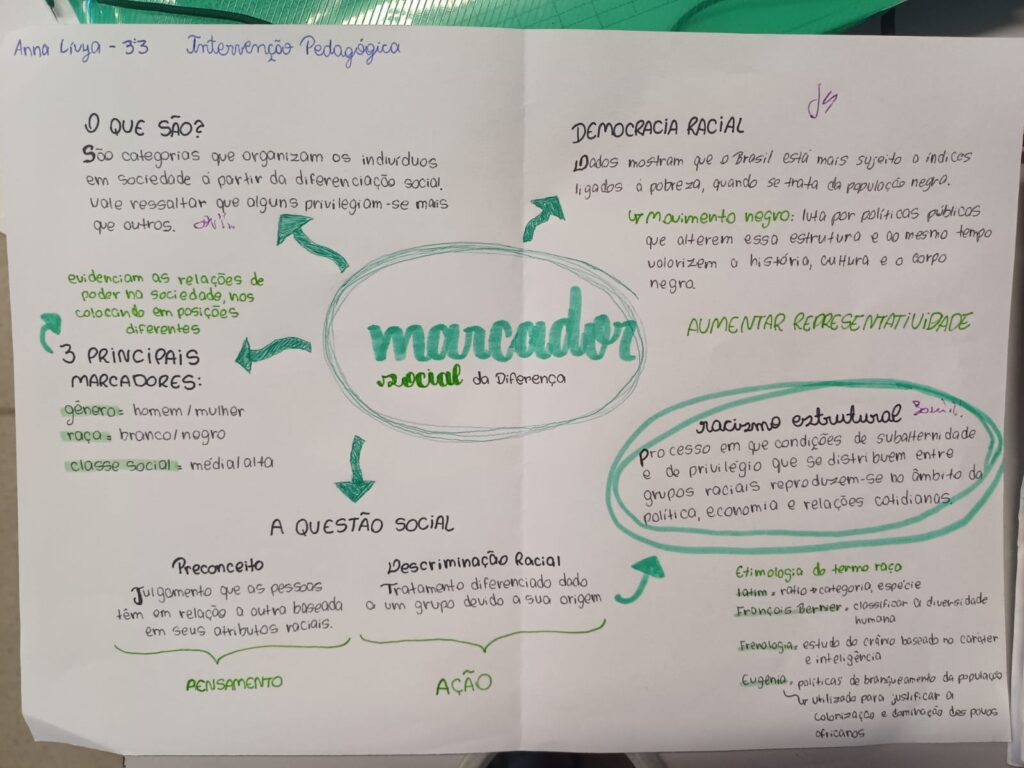 Anna Livya - 3°3 Intervenção Pedagógica
O QUE SÃO?
São categorias que organizam os indivíduos
em sociedade á partir da diferenciação social.
Vale ressaltar que alguns privilegiam-se mais
que outros.
evidenciam as relações de
poder na sociedade, nos
colocando em posições
diferentes
3 PRINCIPAIS
MARCADORES:
gênero = homem/mulher
raça = branco/negro
classe social = média/alta
marcador
social da Diferença
DEMOCRACIA RACIAL
Dados mostram que o Brasil está mais sujeito a índices
ligados á pobreza, quando se trata da população negra.
↳ Movimento negro: luta por políticas públicas
que alterem essa estrutura e ao mesmo tempo
valorizem a história, cultura e o corpo
negro.
AUMENTAR REPRESENTATIVIDADE
racismo estrutural
Processo em que condições de subalternidade
e de privilégio que se distribuem entre
grupos raciais reproduzem-se no âmbito da
política, economia e relações cotidianas.
A QUESTÃO SOCIAL
Preconceito
Julgamento que as pessoas
têm em relação a outra baseada
em seus atributos raciais.
PENSAMENTO
Descriminação Racial
Tratamento diferenciado dado
a um grupo devido a sua origem
AÇÃO
Etimologia do termo raça
latim = ratio → categoria, espécie
François Bernier = classificar a diversidade
humana
Frenologia = estudo do crânio baseado no caráter
e inteligência
Eugenia = políticas de branqueamento da população
↳ utilizado para justificar a
colonização e dominação dos povos
africanos